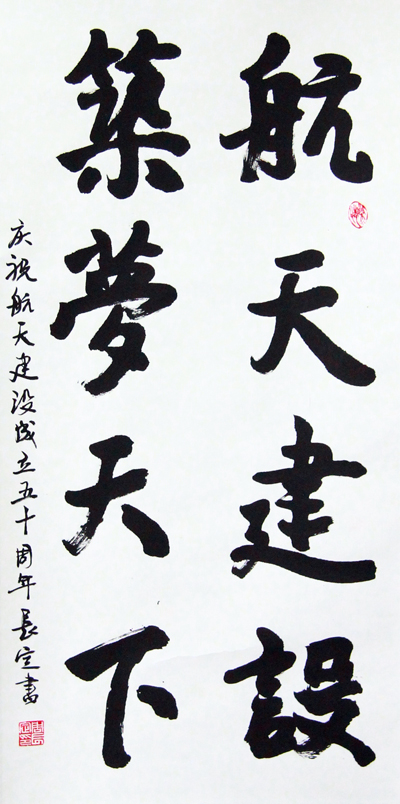 航天建設
築夢天下
庆祝航天建设成立五十周年 長定書